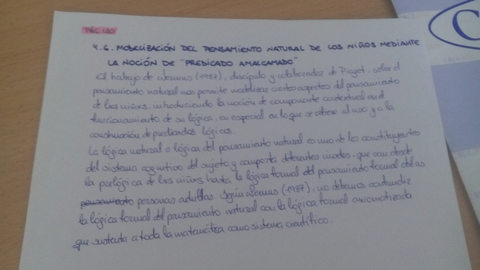 4.6. MODELIZACIÓN DEL PENSAMIENTO NATURAL DE LOS NIÑOS MEDIANTE
LA NOCIÓN DE "PREDICADO AMALGAMADO"
El trabajo de (1987), discípulo y colaborador de Piaget, sobre el
pensamiento natural nos permite modelizar ciertos aspectos del pensamiento
de los niños, introduciendo la noción de componente contextual en el
funcionamiento de su lógica, en especial en lo que se refiere al uso y a la
construcción de predicados lógicos.
La lógica natural o lógica del pensamiento natural es uno de los constituyentes
del sistema cognitivo del sujeto y comporta diferentes modos que van desde
la prelógica de los niños hasta la lógica formal del pensamiento formal de las
pensamiento personas adultas. Según (1987), no debemos confundir
la lógica formal del pensamiento natural con la lógica formal axiomatizada
que sustenta a toda la matemática como sistema científico.
C